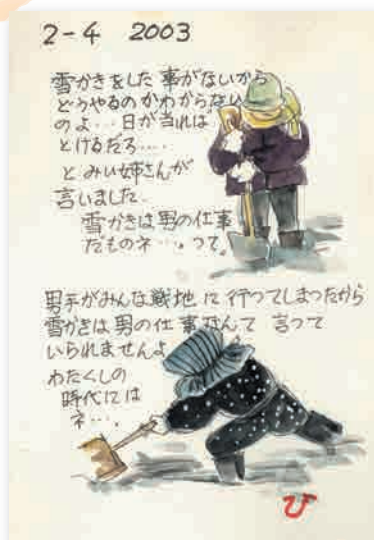 2-4 2003
雪かきをした事がないから
どうやるのかわからない
のよ…日が当れば
とけるだろ....
と みい姉さんが
言いました.
雪かきは男の仕事
だものネ…。って。
男手がみんな戦地に行ってしまったから
雪かきは男の仕事なんて言って
いられませんよ
わたくしの
時代には
ネ…。
び